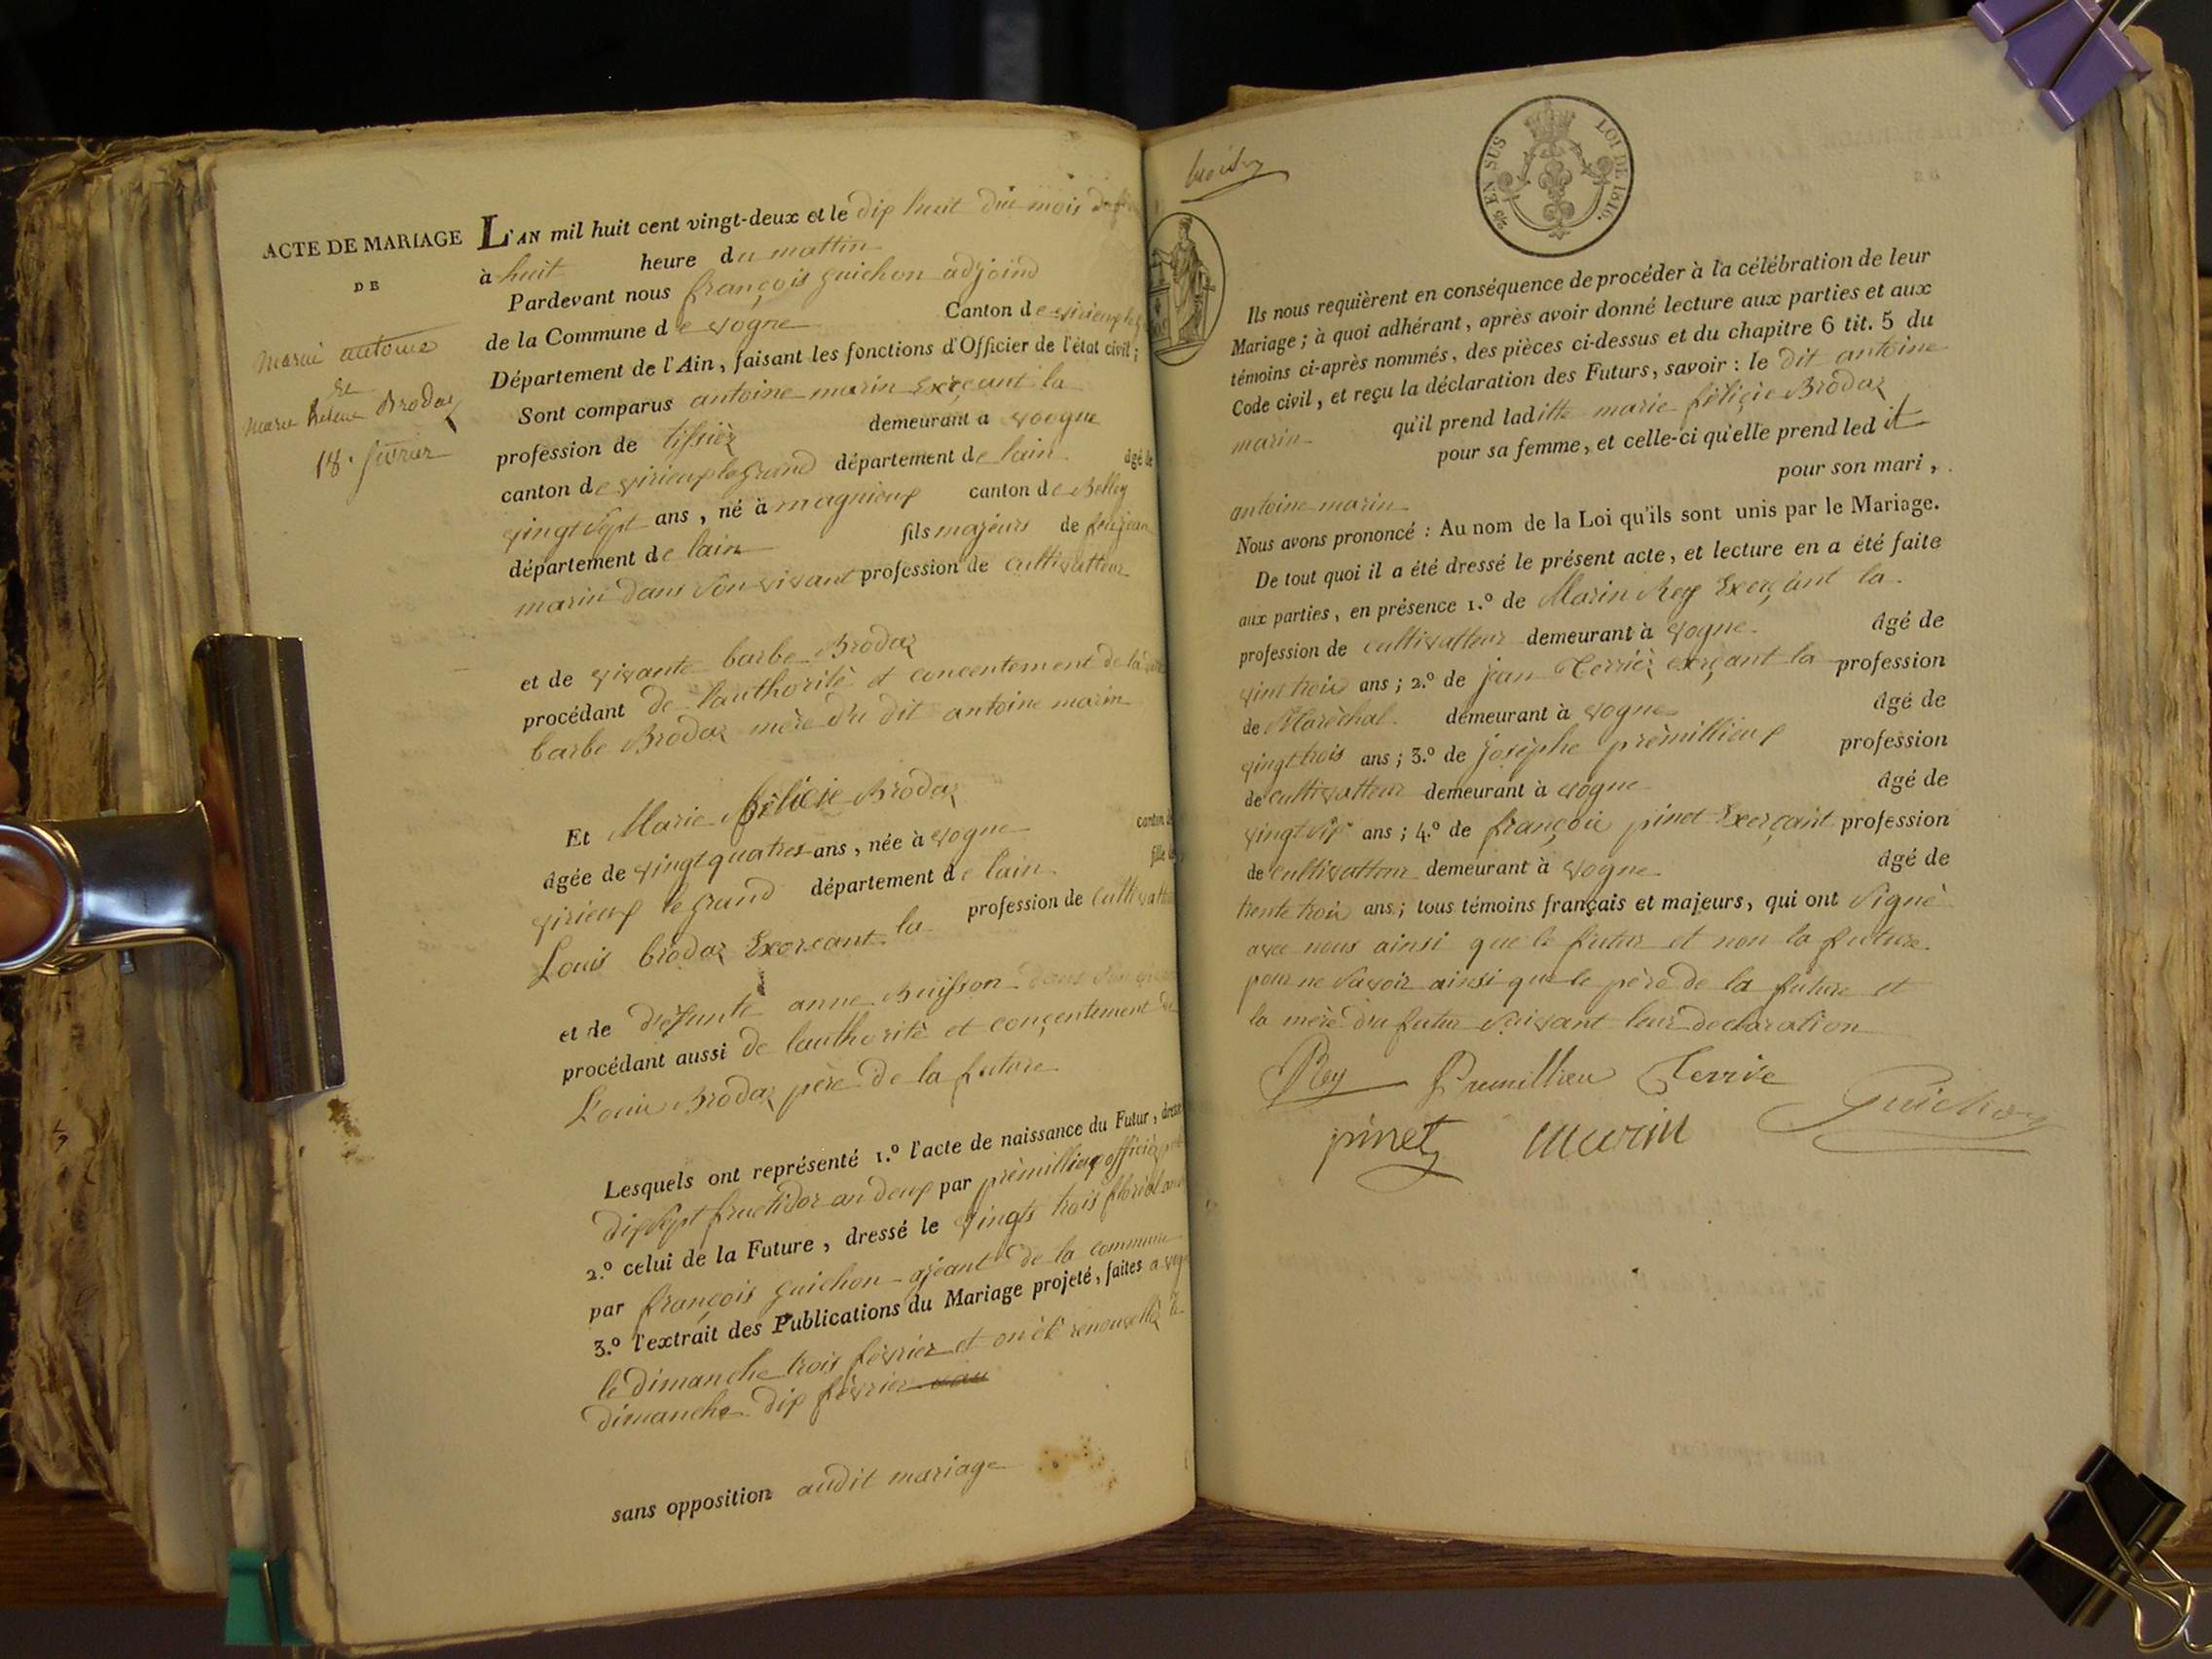 ACTE DE MARIAGE
DE
Marin antoine
et
marie Brodaz
18. fevrier
L'AN mil huit cent vingt-deux et le dix huit du mois de
à huit heure du mattin
Pardevant nous françois guichon adjoind
de la Commune de vogne Canton de virieux
Département de l'Ain, faisant les fonctions d'Officier de l'état civil;
Sont comparus antoine marin Exerçant la
profession de tissièr demeurant a voogne
canton de virieux le grand département de lain âgé de
vingt sept ans, né à magnieux canton de Belley
département de lain fils majeurs de feu jean
marin dans son vivant profession de cultivatteur
et de vivante barbe Brodaz
procédant de l'authorité et concentement de la
barbe Brodaz mère du dit antoine marin
Et Marie féliçie Brodaz
âgée de vingt quatres ans, née à vogne canton de
virieux le grand département de lain fille
Louis brodaz Exerçant la profession de cultivatteur
et de défunte anne Buisson dans son
procédant aussi de lauthorité et conçentement de
Louis Brodaz père de la future
Lesquels ont représenté 1.º l'acte de naissance du Futur, dressé
dix sept fructidor an deux par prèmillieux officièr
2.º celui de la Future, dressé le vingts trois floréal an
par françois guichon ajeant de la commune
3.º l'extrait des Publications du Mariage projeté, faites a vogne
le dimanche trois février et on été renouvellé le
dimanche dix février
sans opposition audit mariage
EN SUS LOI DE 1816.
Ils nous requièrent en conséquence de procéder à la célébration de leur
Mariage; à quoi adhérant, après avoir donné lecture aux parties et aux
témoins ci-après nommés, des pièces ci-dessus et du chapitre 6 tit. 5 du
Code civil, et reçu la déclaration des Futurs, savoir: le dit antoine
marin qu'il prend laditte marie féliçie Brodaz
pour sa femme, et celle-ci qu'elle prend ledit
antoine marin pour son mari,
Nous avons prononcé: Au nom de la Loi qu'ils sont unis par le Mariage.
De tout quoi il a été dressé le présent acte, et lecture en a été faite
aux parties, en présence 1.º de Marin Rey Exerçant la
profession de cultivatteur demeurant à vogne âgé de
vint trois ans; 2.º de jean Terrièr exerçant la profession
de Maréchal demeurant à vogne âgé de
vingt trois ans; 3.º de josèphe prèmillieux profession
de cultivatteur demeurant à vogne âgé de
vingt ans; 4.º de françois pinet Exerçant profession
de cultivatteur demeurant à vogne âgé de
trente trois ans; tous témoins français et majeurs, qui ont signé
avec nous ainsi que le futur et non la future
pour ne savoir ainsi que le père de la future et
la mère du futur suivant leur declaration
Rey Premillieu Terrie Guichon
pinet Marin